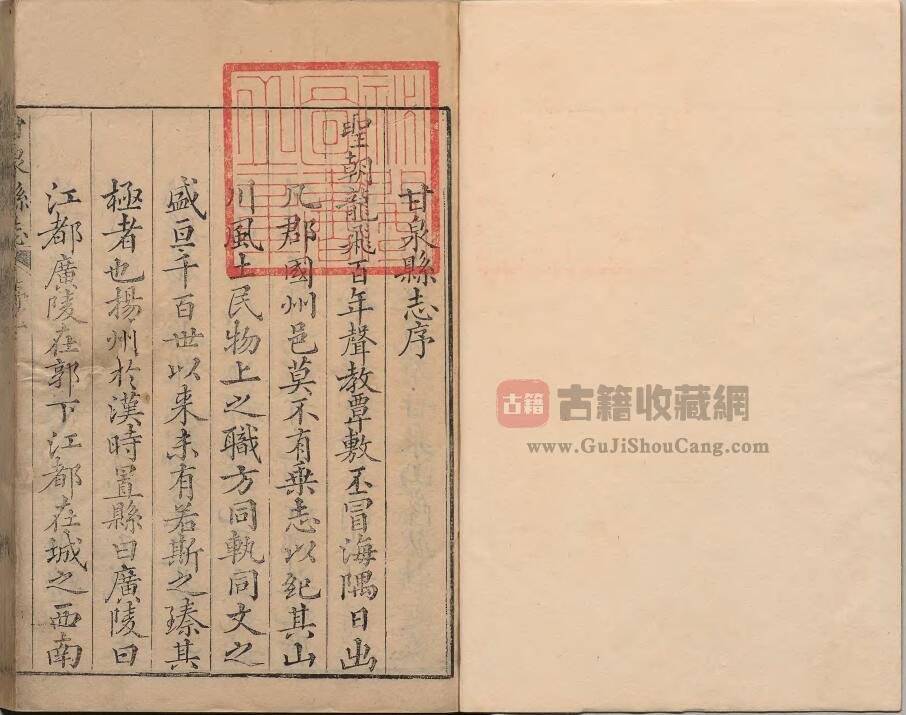 甘泉縣志序
聖朝龍飛百年聲教覃敷丕冒海隅日出
凡郡國州邑莫不有乗志以紀其山
川風土民物上之職方同軌同文之
盛亘千百世以来未有若斯之臻其
極者也揚州於漢時置縣曰廣陵曰
江都廣陵在郭下江都在城之西南
泉縣志
古籍
古籍收藏網
www.GuJiShouCang.com